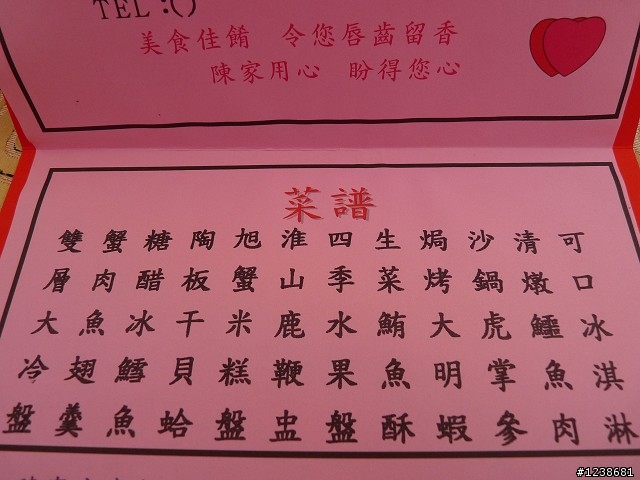 TEL:()
美食佳餚 令您唇齒留香
陳家用心 盼得您心
菜譜
雙層大冷盤
蟹肉魚翅羹
糖醋冰鱈魚
陶板干貝蛤
旭蟹米糕盤
淮山鹿鞭盅
四季水果盤
生菜鮪魚酥
焗烤大明蝦
沙鍋虎掌參
清燉鱷魚肉
可口冰淇淋
#1238681